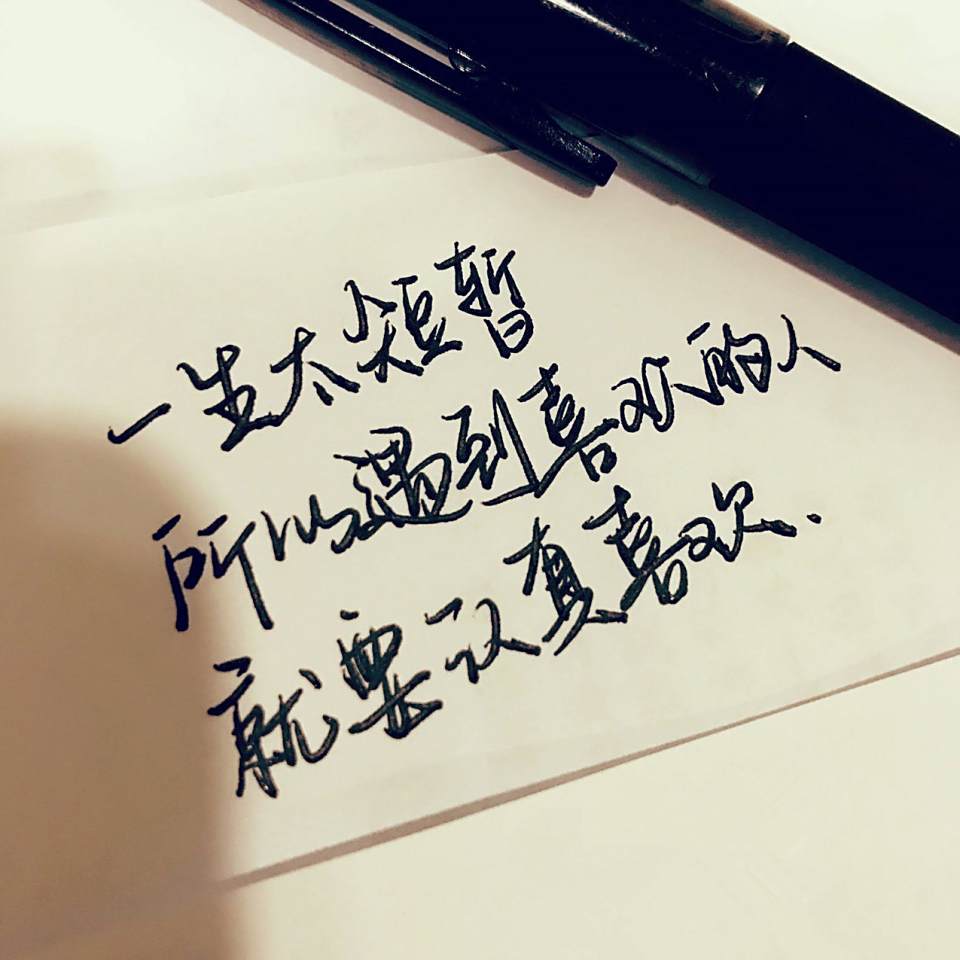 一生太短暂
所以遇到喜欢的人
就要认真喜欢.